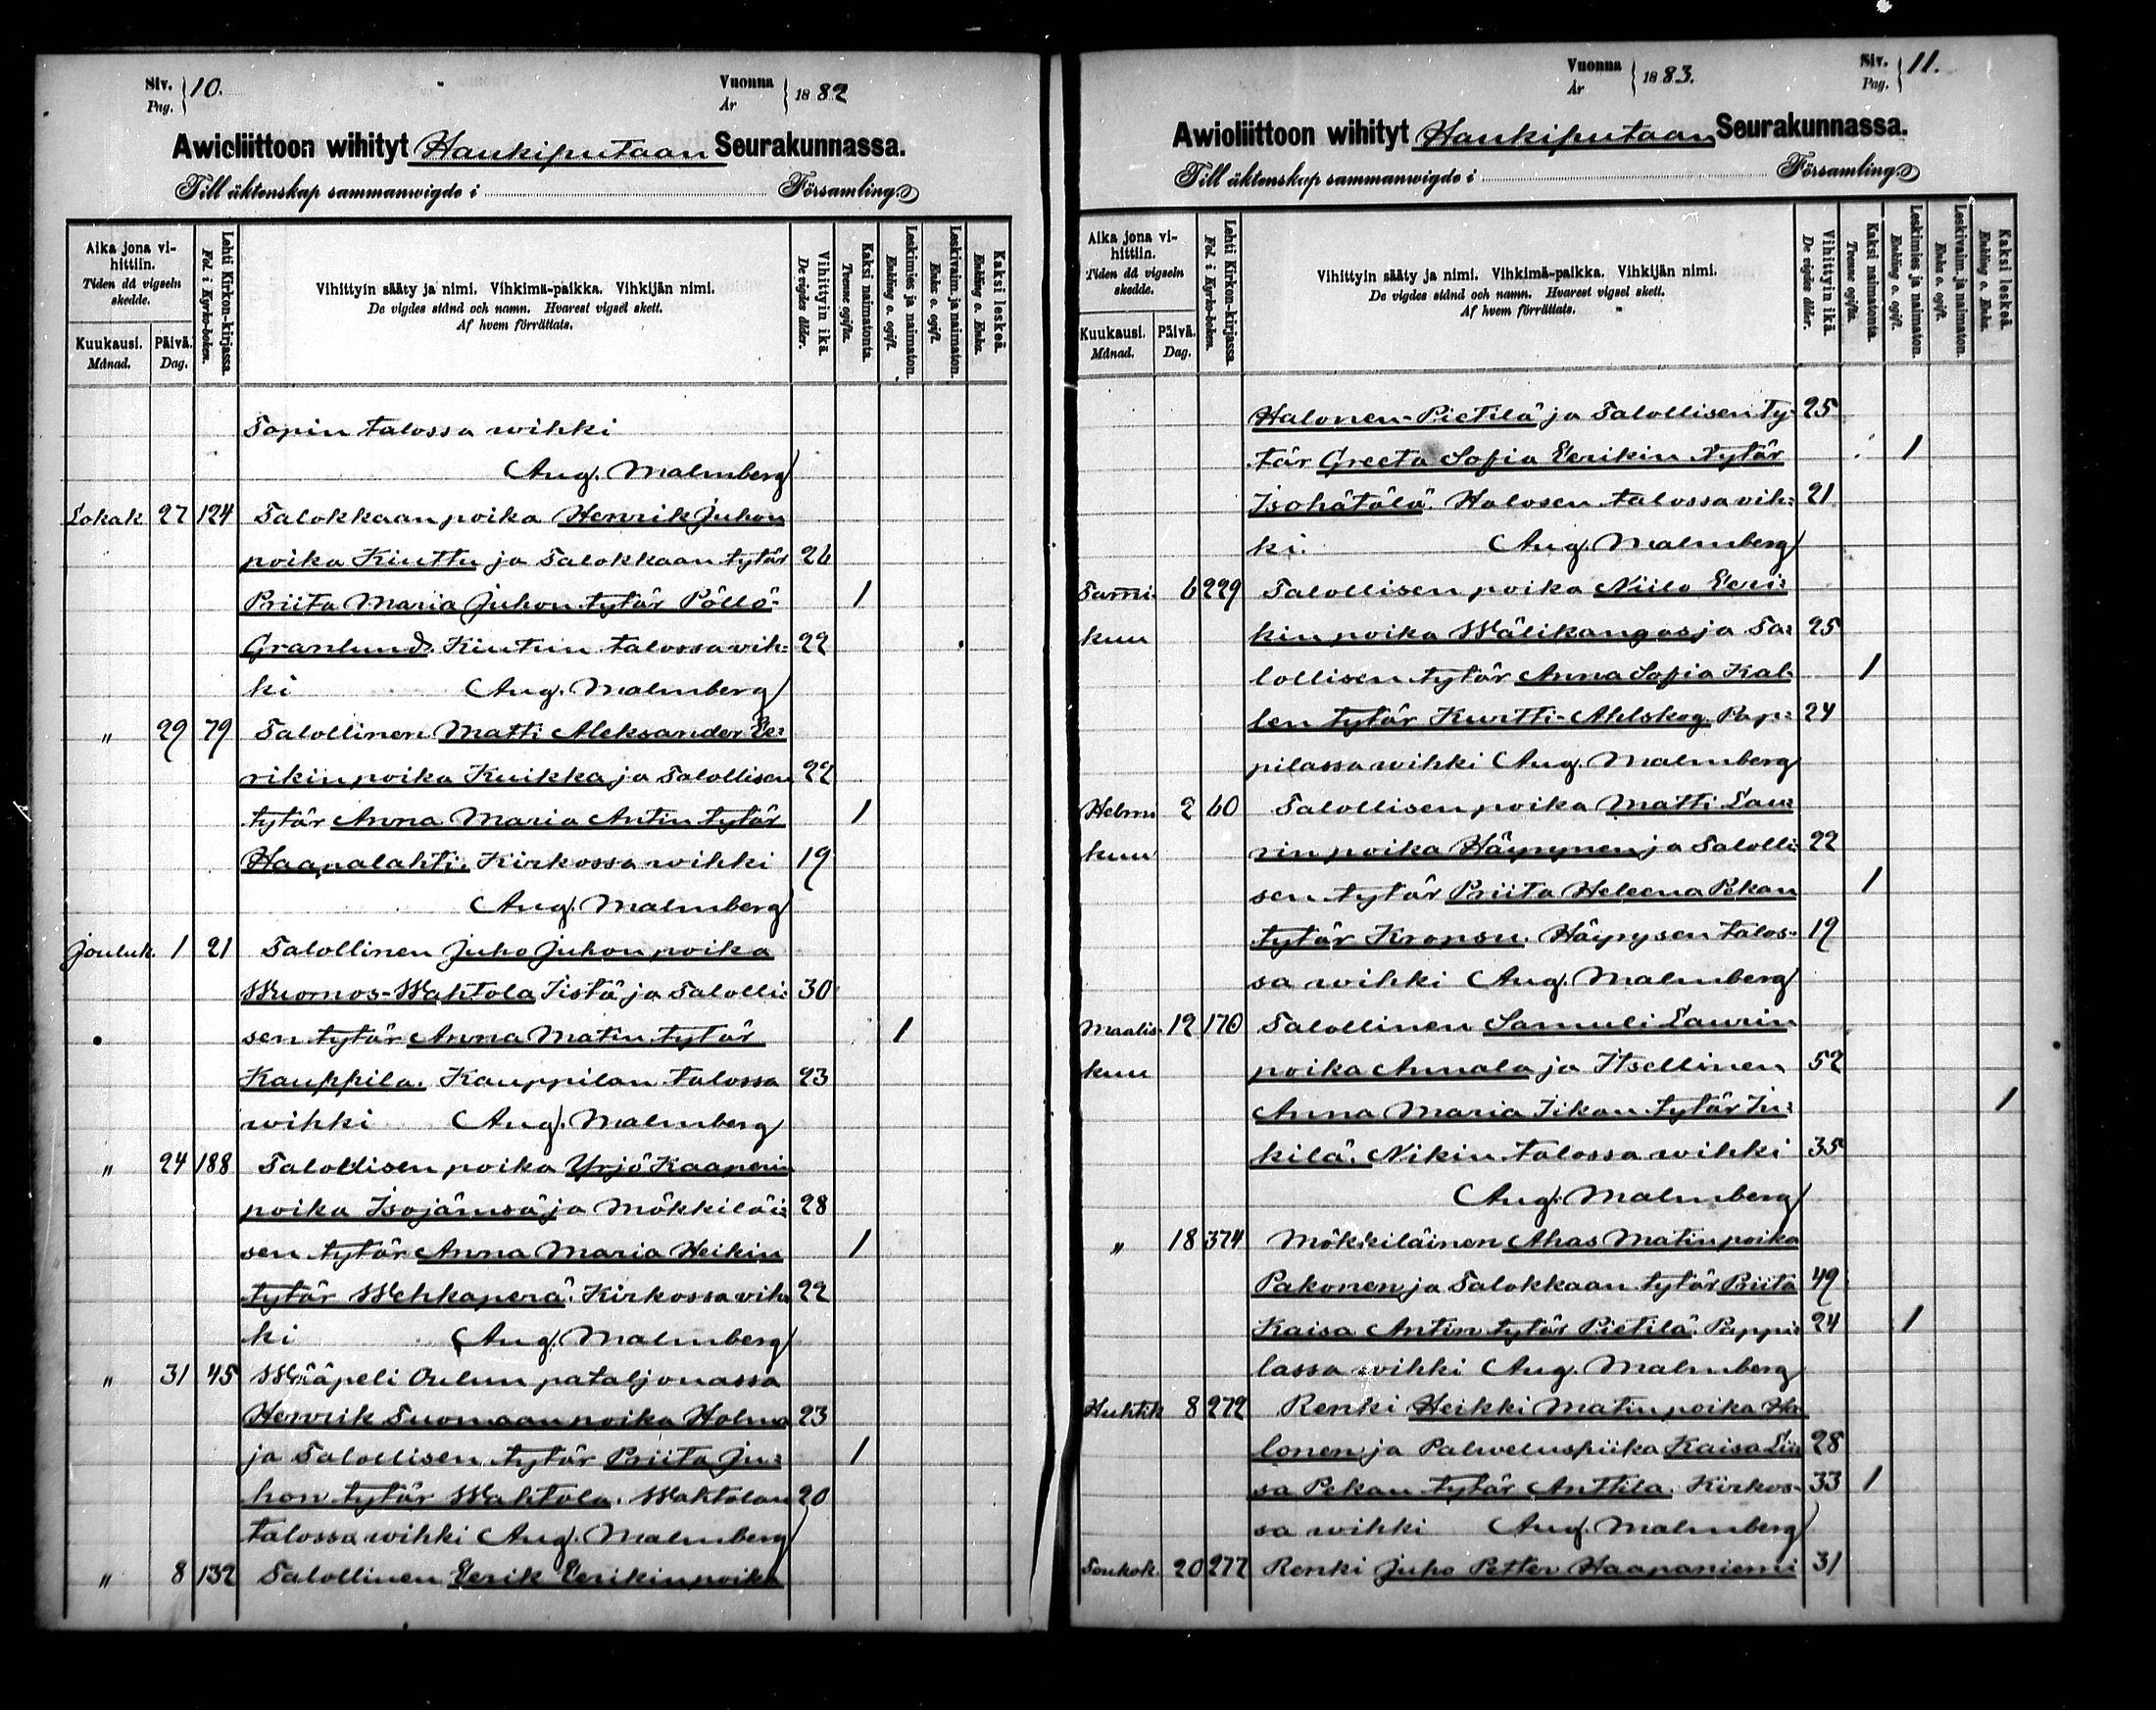 Siv.
Pag. } 10.
Vuonna
År } 1882
Awioliittoon wihityt Haukiputaan Seurakunnassa.
Till äktenskap sammanwigde i Församling.
Aika jona vi-
hittiin.
Tiden då vigseln
skedde.
Kuukausi.
Månad.
Päivä.
Dag.
Lehti Kirkon-kirjassa.
Fol. i Kyrko-boken.
Vihittyin sääty ja nimi. Vihkimä-paikka. Vihkijän nimi.
De vigdes stånd och namn. Hvarest vigsel skett.
Af hvem förrättats.
Vihittyin ikä.
De vigdes ålder.
Kaksi naimatonta.
Tvenne ogifta.
Leskimies ja naimaton.
Enkling o. ogift.
Leskivaim. ja naimaton.
Enka o. ogift.
Kaksi leskeä.
Enkling o. Enka.
Tapin talossa wihki
Aug. Malmberg
Lokak 27 124 Talokkaan poika Henrik Juhon
poika Kinttu ja Talokkaan tytär 26
Priita Maria Juhon tytär Pöllö- 1
Granlund. Kintun talossa vih- 22
ki Aug. Malmberg
" 29 79 Talollinen Matti Aleksander Ee-
rikin poika Kuikka ja Talollisen 22
tytär Anna Maria Antin tytär 1
Haapalahti. Kirkossa wihki 19
Aug. Malmberg
Jouluk. 1 21 Talollinen Juho Juhon poika
Wuomos-Wahtola Iistä ja Talolli- 30
sen tytär Anna Matin tytär 1
Kauppila. Kauppilan talossa 23
wihki Aug. Malmberg
" 24 188 Talollisen poika Yrjö Kaaperin
poika Isojämsä ja Mökkiläi- 28
sen tytär Anna Maria Heikin 1
tytär Wehkaperä. Kirkossa vih- 22
ki Aug. Malmberg
" 31 45 Wääpeli Oulun pataljonassa
Henrik Tuomaan poika Holma 23
ja Talollisen tytär Priita Ju- 1
hon tytär Wahtola. Wahtolan 20
talossa wihki Aug. Malmberg
" 8 132 Talollinen Eerik Eerikin poika
Vuonna
År } 1883.
Siv.
Pag. } 11.
Awioliittoon wihityt Haukiputaan Seurakunnassa.
Till äktenskap sammanwigde i Församling.
Aika jona vi-
hittiin.
Tiden då vigseln
skedde.
Kuukausi.
Månad.
Päivä.
Dag.
Lehti Kirkon-kirjassa.
Fol. i Kyrko-boken.
Vihittyin sääty ja nimi. Vihkimä-paikka. Vihkijän nimi.
De vigdes stånd och namn. Hvarest vigsel skett.
Af hvem förrättats.
Vihittyin ikä.
De vigdes ålder.
Kaksi naimatonta.
Tvenne ogifta.
Leskimies ja naimaton.
Enkling o. ogift.
Leskivaim. ja naimaton.
Enka o. ogift.
Kaksi leskeä.
Enkling o. Enka.
Halonen-Pietilä ja Talollisen Ty- 25
tär Greeta Sofia Eerikin tytär 1
Isohätälä. Halosen talossa vih- 21
ki. Aug. Malmberg
Tami- 6 229 Talollisen poika Niilo Eeri-
kuu kin poika Wälikangas ja Ta- 25
lollisen tytär Anna Sofia Kal- 1
len tytär Kurtti-Ahlskog. Pap- 24
pilassa wihki Aug. Malmberg
Helmi 2 60 Talollisen poika Matti Lau-
kuu rin poika Häyrynen ja Talolli- 22
sen tytär Priita Heleena Pekan 1
tytär Kropsu. Häyrysen talos- 19
sa wihki Aug. Malmberg
Maalis- 12 170 Talollinen Samuli Laurin
kuu poika Annala ja Itsellinen 52
Anna Maria Iikan tytär Ju- 1
kilä. Nikin talossa wihki 35
Aug. Malmberg
" 18 374 Mökkiläinen Ahas Matin poika
Pakonen ja Talokkaan tytär Priita 49
Kaisa Antin tytär Pietilä. Pappi- 24 1
lassa wihki Aug. Malmberg
Huhtik 8 272 Renki Heikki Matin poika Ha-
lonen ja Palweluspiika Kaisa Lii- 28
sa Pekan tytär Anttila. Kirkos- 33 1
sa wihki Aug. Malmberg
Toukok. 20 277 Renki Juho Petter Haapaniemi 31